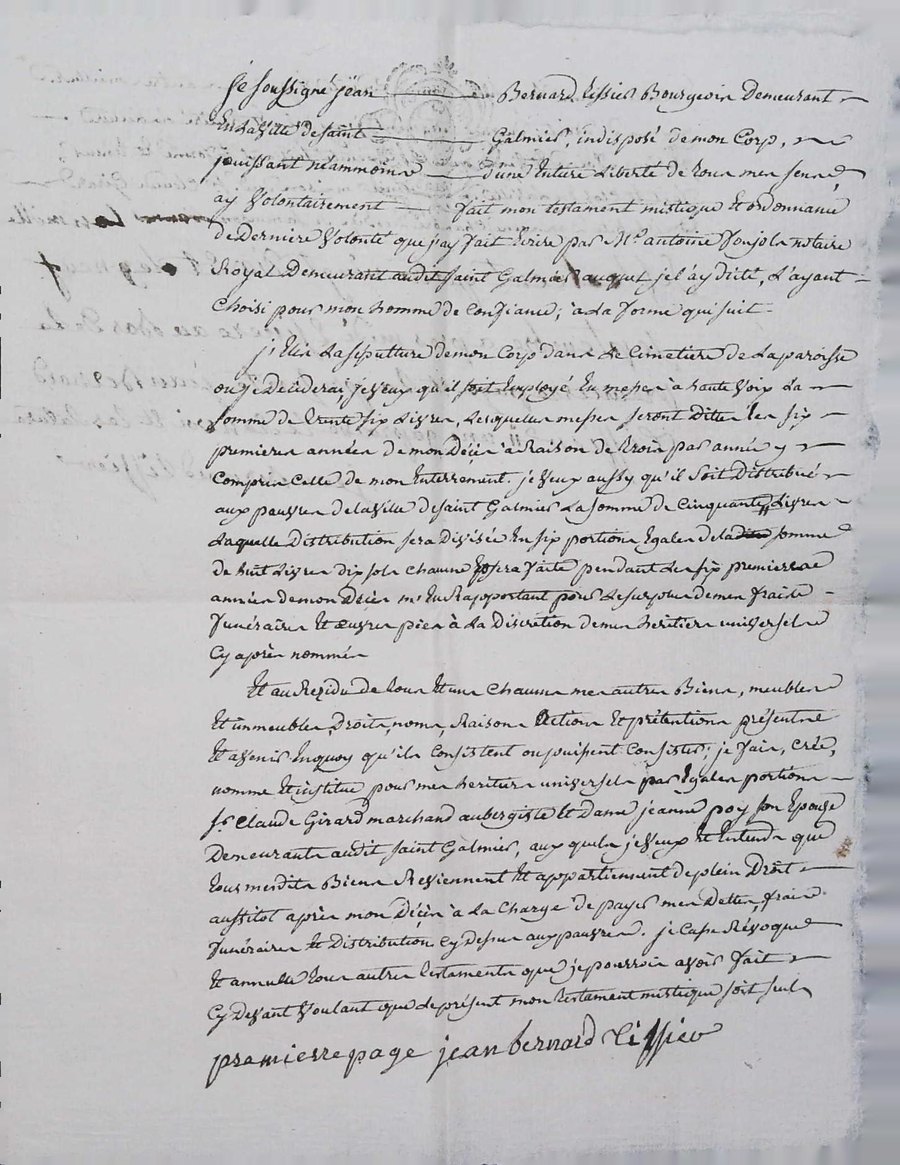 je soussigné jean Bernard Lissier Bourgeois Demeurant
En la Ville de saint Galmier, indisposé de mon Corp,
jouissant néammoins d'une Entiere Liberté de tous mes sens,
ay Volontairement fait mon testament mistique Et ordonnance
de Derniere Volonté que j'ay fait Ecrire par Me. antoine notaire
Royal Demeurant audit saint Galmier auquel je l'ay dicté, L'ayant
Choisi pour mon homme de Confiance, à La forme qui suit
j'Elis La sepulture de mon Corp dans Le Cimetiere de La paroisse
ou je Deciderai, je Veux qu'il soit Employé En messes à haute Voix La
somme de trente six Livres, Lesquelles messes seront Dittes Les six
premieres années de mon Décès à Raison de trois par année y
Compris Celle de mon Enterrement. je Veux aussy qu'il soit Distribué
aux pauvres de la Ville de saint Galmier La somme de Cinquante Livres
Laquelle Distribution sera Divisée En six portions Egales de la dite somme
de huit Livres dix sols Chacune sera faite pendant Les six premieres
années de mon Décès m'En Rapportant pour Le surplus de mes fraix
funéraires Et œuvres pies à La Discretion de mes heritiers universels
Cy après nommés
Et au Rezidu de tous Et uns Chacuns mes autres Biens, meubles
Et immeubles, Droits, noms, Raisons Actions Et prétentions présents
Et avenir Enquoy qu'ils Consistent ou puissent Consister, je fais, Crée,
nomme Et institue pour mes heritiers universels par Egales portions
sr. Claude Girard marchand aubergiste Et Dame jeanne poy son Epouse
Demeurants audit saint Galmier, aux quels je Veux Et Entends que
tous mesdits Biens Reviennent Et appartiennent de plein Droit
aussitot après mon Décès à La Charge de payer mes Dettes, fraix
funéraires Et Distribution Cy Dessus aux pauvres. je Casse Révoque
Et annulle tous autres testaments que je pourrois avoir fait
Cy Devant Voulant que le présent mon testament mistique soit seul
premierre page jean bernard Lissier